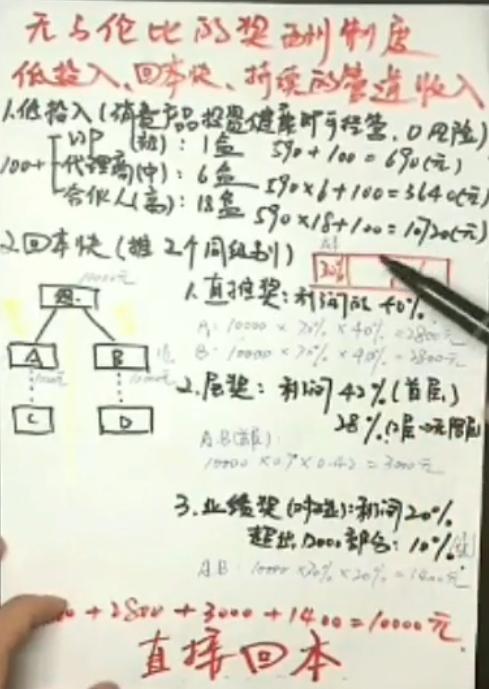 无与伦比的奖酬制度
低投入、回本快、持续的管道收入
1.低投入(消费产品投资健康即可经营、0风险)
100+
VIP (初): 1盒 590+100=690(元)
代理商(中): 6盒 590×6+100=3640(元)
合伙人(高): 18盒 590×18+100=10720(元)
2.回本快(推2个同级别)
10000元
30%
1.直推奖:利润的40%
A: 10000×70%×40%=2800元
B: 10000×70%×40%=2800元
A
B
C
D
2.层奖: 利润42%(首层)
28%
A.B(首层):
10000×0.7×0.42=3000元
3.业绩奖(对碰):利润20%
超出 部分:10%
A.B: 10000×70%×20%=1400元
+2800+3000+1400=10000元
直接回本